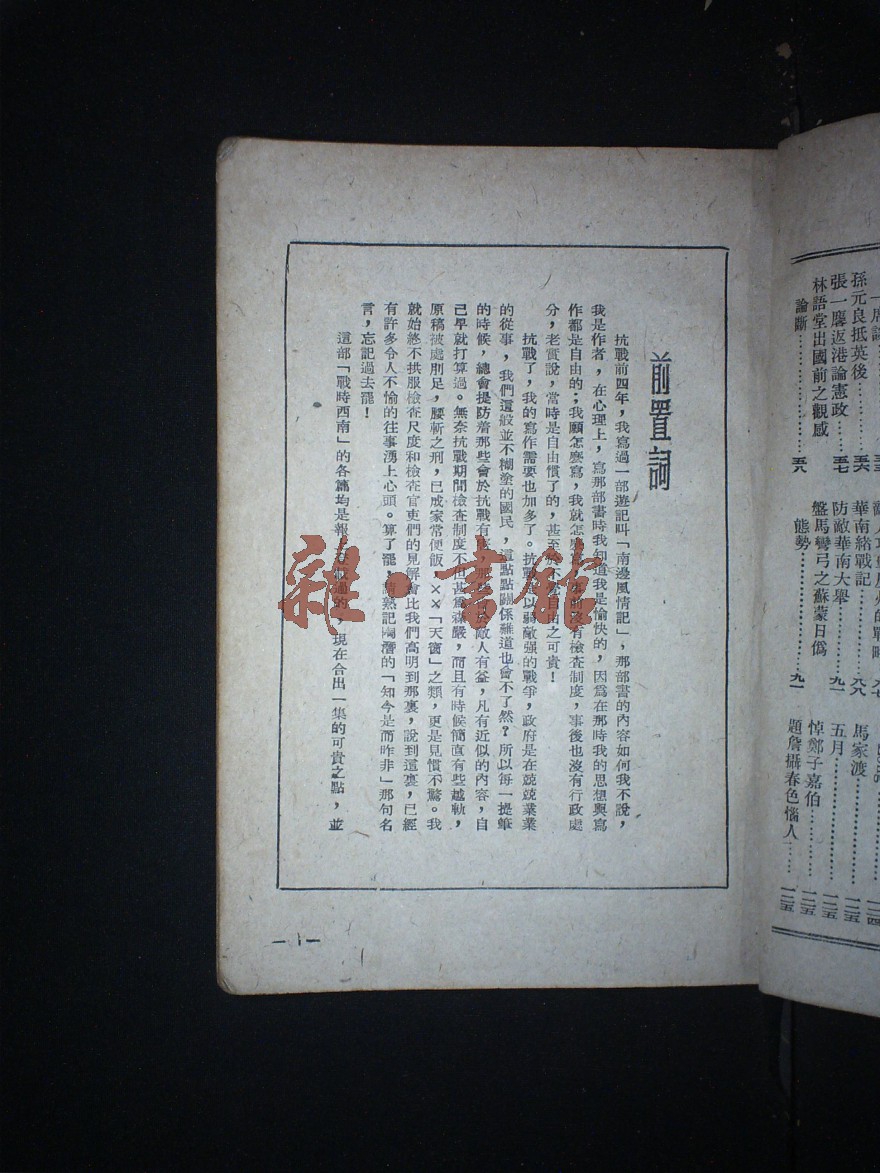 前置詞
抗戰前四年，我寫過一部遊記叫「南邊風情記」，那部書的內容如何我不說，
我是作者，在心理上，寫那部書時我知道我是愉快的，因爲在那時我的思想與寫
作都是自由的；我願怎麽寫，我就怎麽寫，事前沒有檢查制度，事後也沒有行政處
分，老實說，當時是自由慣了的，甚至於不覺自由之可貴！
抗戰了，我的寫作需要也加多了。抗戰是以弱敵强的戰爭，政府是在兢兢業業
的從事，我們這般並不糊塗的國民，這點點關係難道也會不了然？所以每一提筆
的時候，總會提防着那些會於抗戰有，那些會於敵人有益，凡有近似的內容，自
己早就打算過。無奈抗戰期間檢查制度不但甚爲森嚴，而且有時候簡直有些越軌，
原稿被處刖足，腰斬之刑，已成家常便飯，××「天窗」之類，更是見慣不驚。我
就始終不拱服檢查尺度和檢查官吏們的見解會比我們高明到那裏，說到這裏，已經
有許多令人不愉的往事湧上心頭。算了罷，熟記陶潛的「知今是而昨非」那句名
言，忘記過去罷！
這部「戰時西南」的各篇均是報登載過的，現在合出一集的可貴之點，並
—1—
孫元良抵英後……五六
張一麐返港論憲政……五七
林語堂出國前之觀感
論斷……五八
華南絡戰記……八八
防敵華南大舉……九一
盤馬彎弓之蘇蒙日僞
態勢……九一
馬家渡……一二五
五月……一二五
悼鄭子嘉伯……一二五
題詹攝春色惱人……一二五
雜·書館